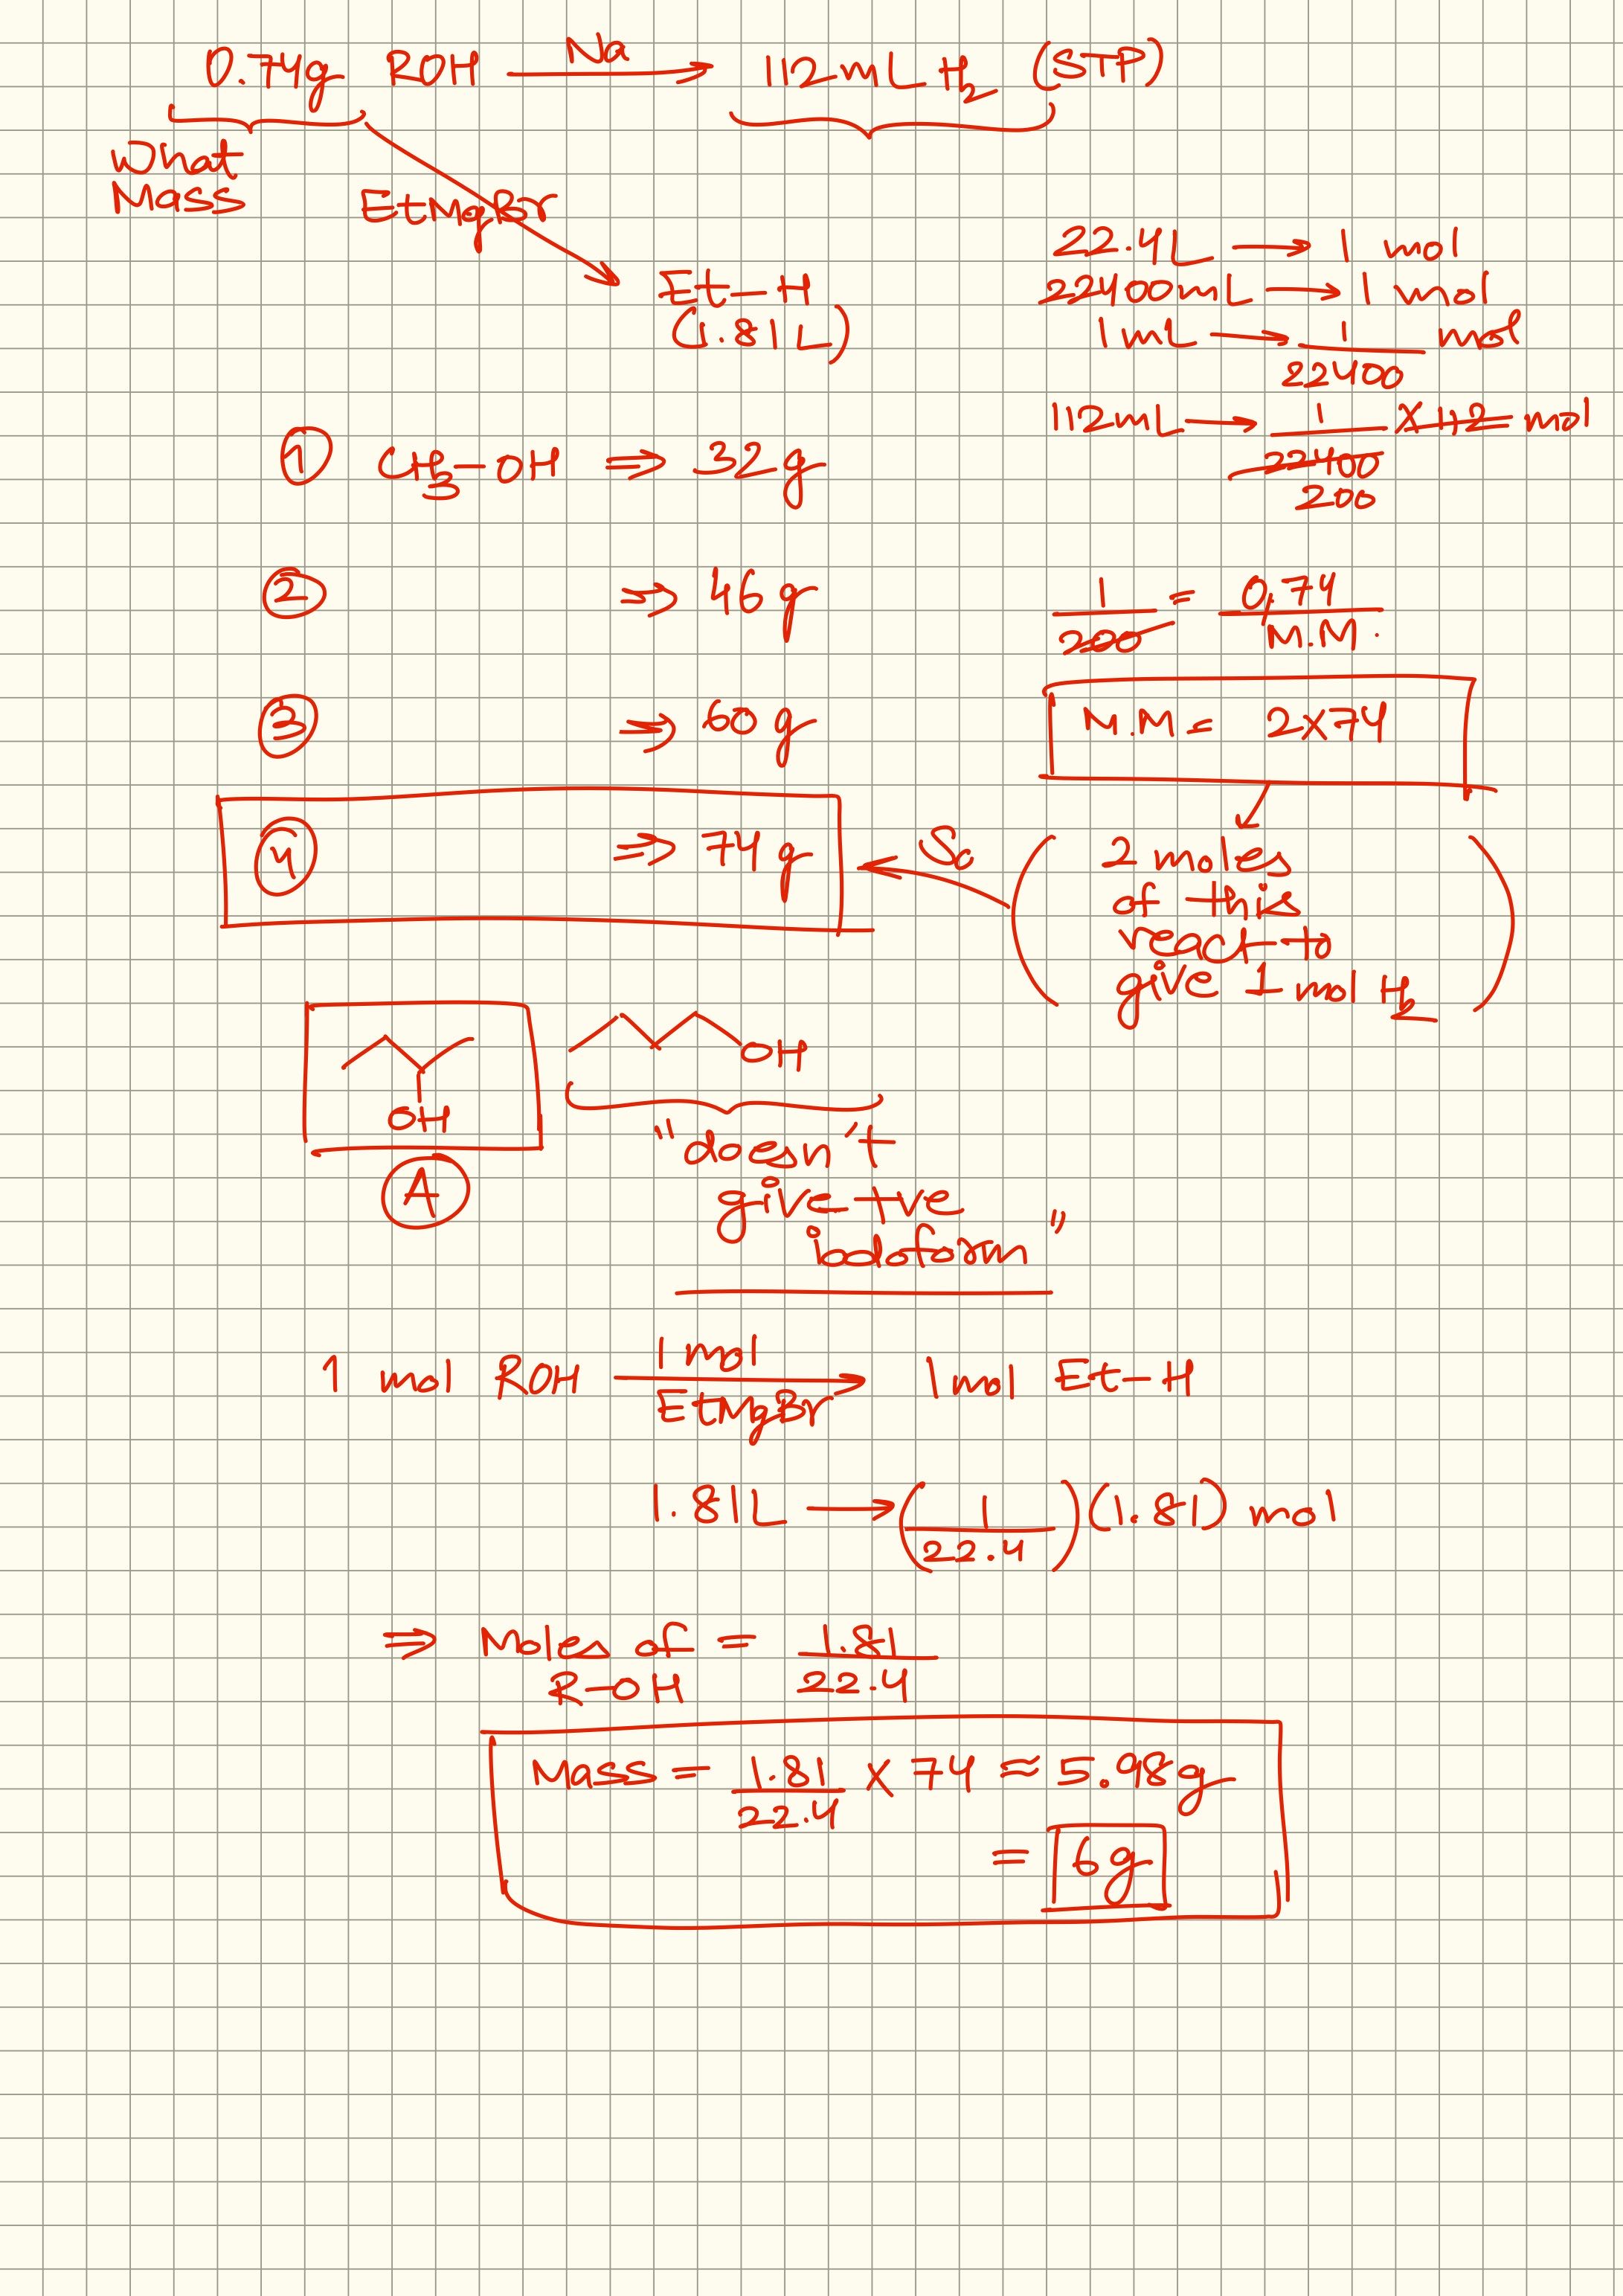 0.74g ROH Na → 112mL H₂ (STP)
What
Mass
EtMgBr
Et-H
(1.81L)
22.4L → 1 mol
22400mL → 1 mol
1 mL → 1/22400 mol
112mL → 1/22400 × 112 mol
200
① CH₃-OH ⇒ 32g
② ⇒ 46g
1/200 = 0.74/M.M.
③ ⇒ 60g
M.M = 2×74
④ ⇒ 74g
So
2 moles
of this
react to
give 1 mol H₂
OH
OH
A
"doesn't
give +ve
iodoform"
1 mol ROH 1 mol EtMgBr → 1 mol Et-H
1.81L → (1/22.4)(1.81) mol
⇒ Moles of R-OH = 1.81/22.4
Mass = 1.81/22.4 × 74 ≈ 5.98g
= 6g